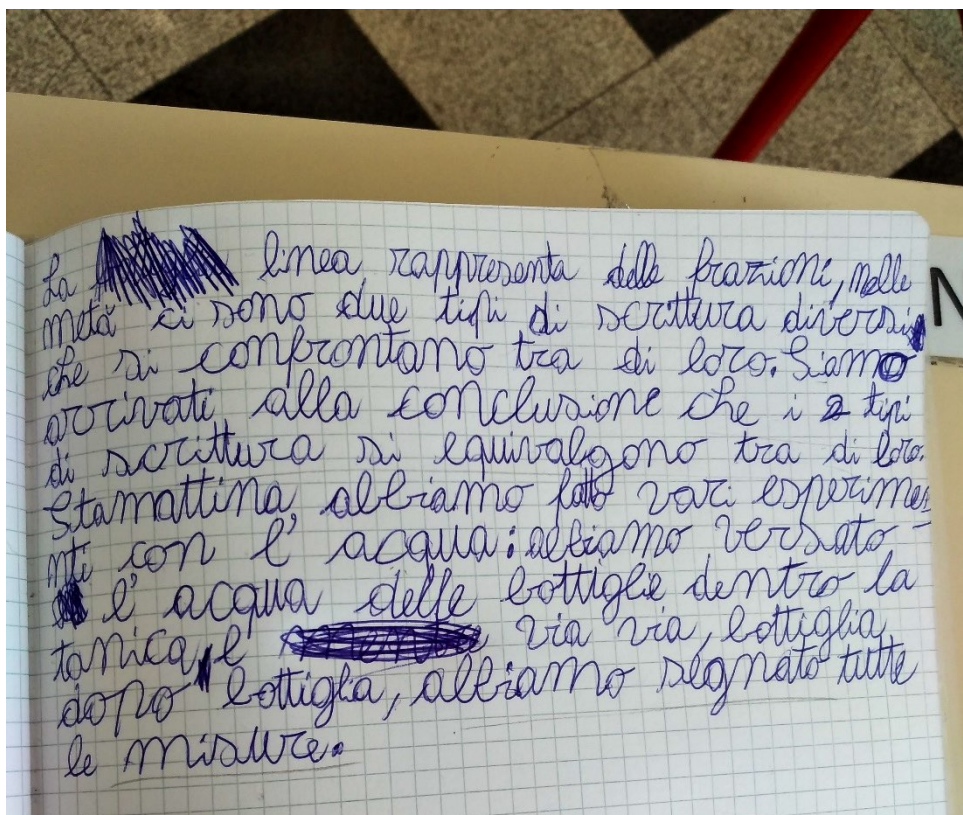 La linea rappresenta delle frazioni, nelle
metà ci sono due tipi di scrittura diversi
che si confrontano tra di loro. Siamo
arrivati alla conclusione che i 2 tipi
di scrittura si equivalgono tra di loro.
Stamattina abbiamo fatto vari esperime-
nti con l'acqua: abbiamo versato
l'acqua delle bottiglie dentro la
tanica, e via via, bottiglia
dopo bottiglia, abbiamo segnato tutte
le misure.
N